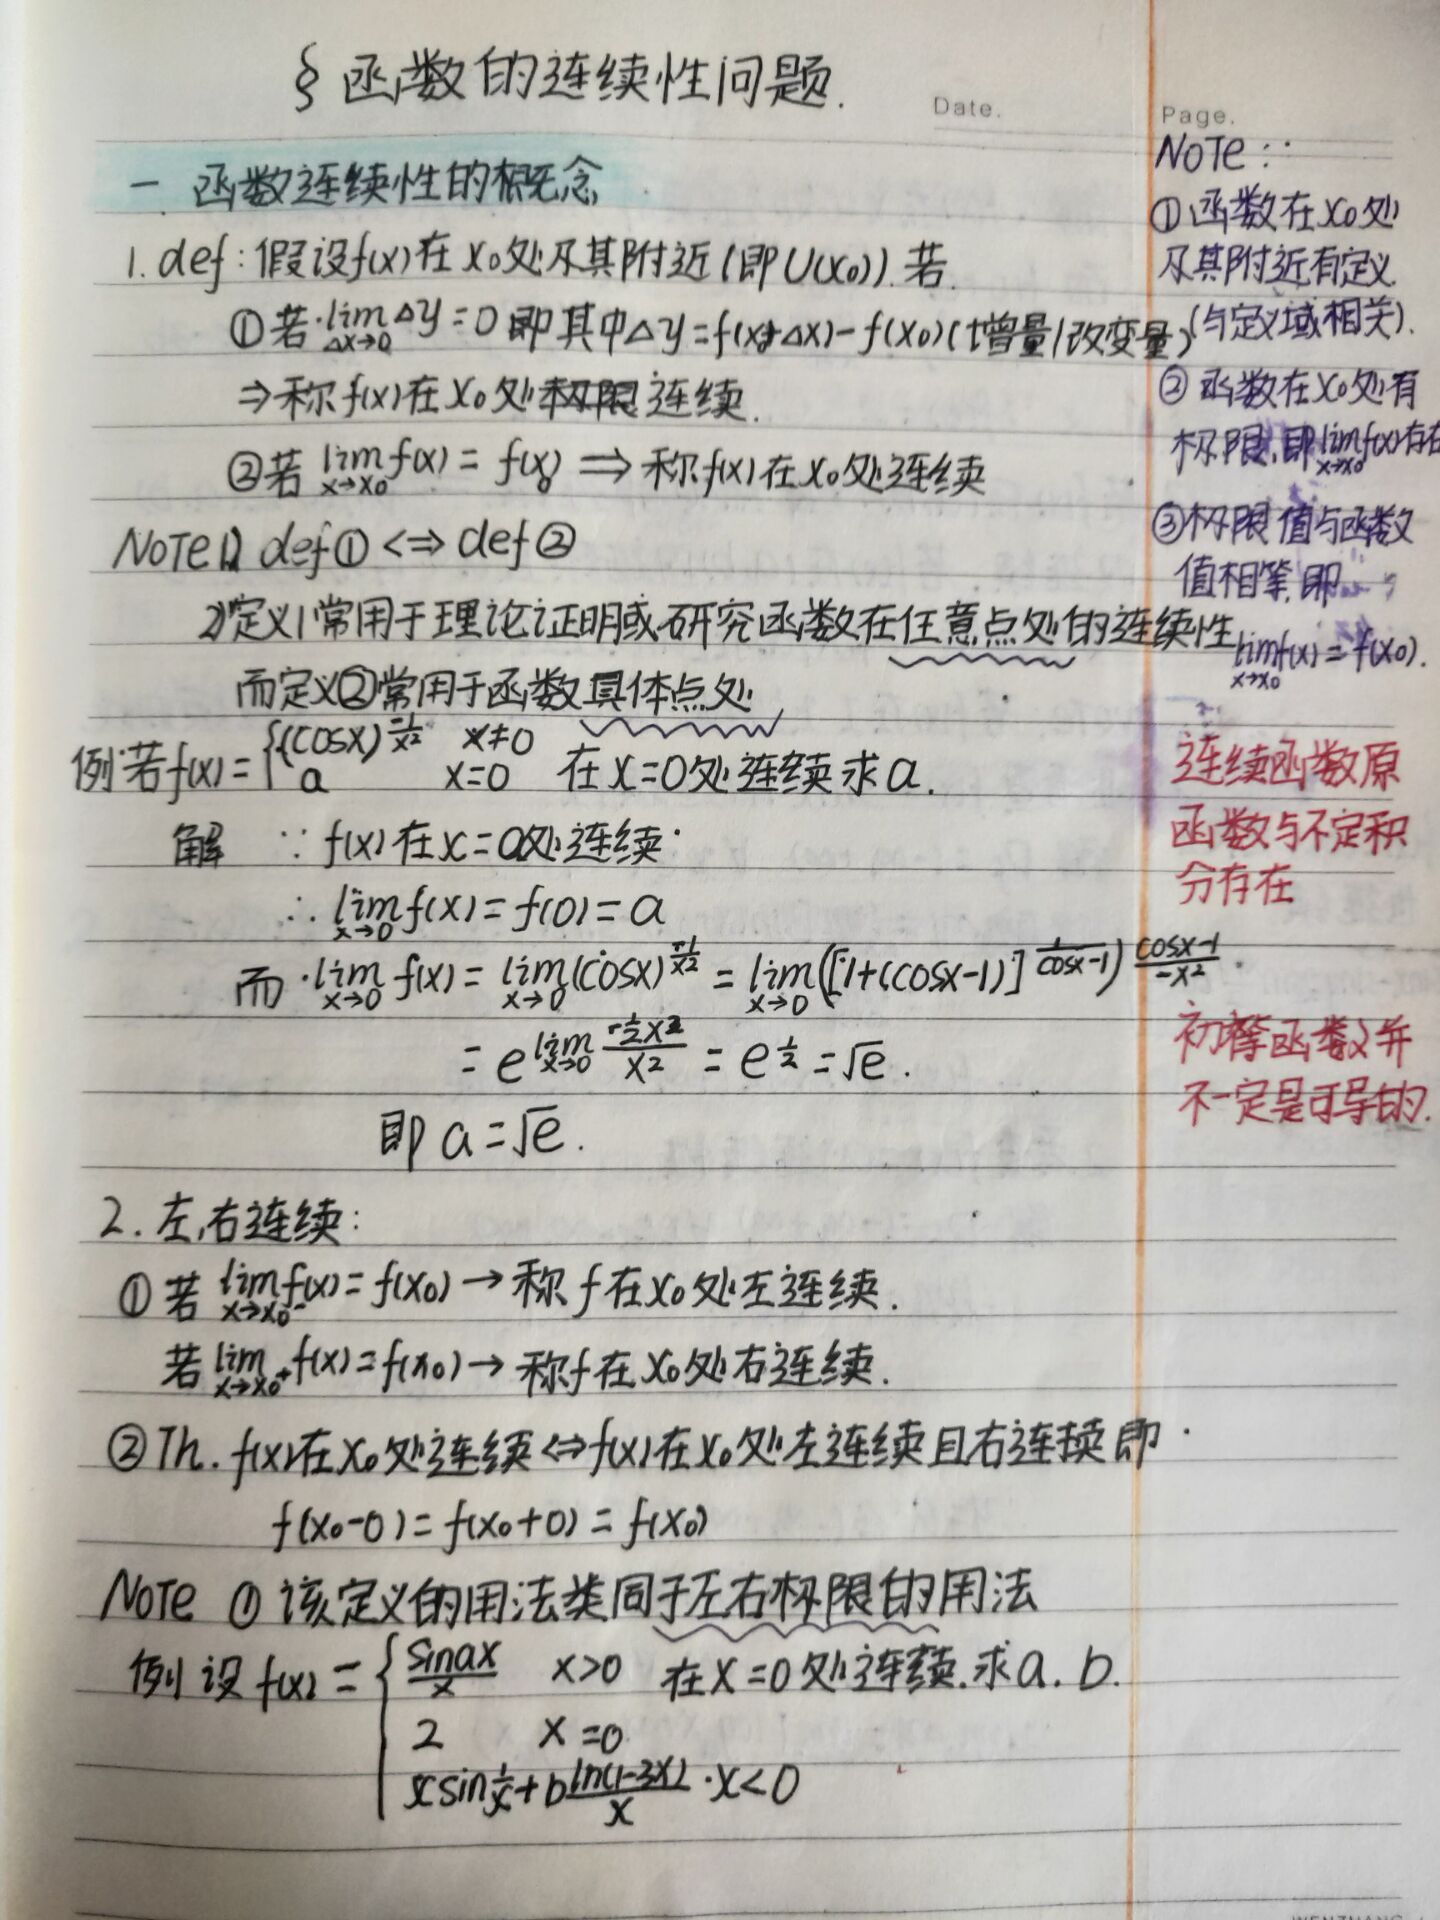 § 函数的连续性问题.
Date.
Page.
一 函数连续性的概念
1. def: 假设f(x)在x₀处及其附近(即U(x₀)).若
①若 lim_{Δx→0} Δy=0 即其中Δy=f(x₀+Δx)-f(x₀)(增量/改变量)
⇒称f(x)在x₀处 连续.
②若 lim_{x→x₀} f(x) = f(x₀) ⇒ 称f(x)在x₀处连续
NOTE 1) def① <=> def②
2)定义1常用于理论证明或研究函数在任意点处的连续性
而定义②常用于函数具体点处
例:若f(x)={(cosx)^{-1/x²} x≠0
a x=0 在x=0处连续求a.
解 ∵ f(x)在x=0处连续
∴ lim_{x→0} f(x)=f(0)=a
而 lim_{x→0} f(x)= lim_{x→0} (cosx)^{-1/x²} = lim_{x→0} ([1+(cosx-1)]^{1/(cosx-1)})^{(cosx-1)/(-x²)}
= e^{lim_{x→0} (-½x²)/x²} = e^{1/2} = √e.
即 a=√e.
2. 左,右连续:
①若 lim_{x→x₀⁻} f(x)=f(x₀)→称f在x₀处左连续.
若 lim_{x→x₀⁺} f(x)=f(x₀)→称f在x₀处右连续.
②Th. f(x)在x₀处连续<=>f(x)在x₀处左连续且右连续即
f(x₀-0)=f(x₀+0)=f(x₀)
NOTE ①该定义的用法类同于左右极限的用法
例 设 f(x)={ sinax/x x>0 在x=0处连续.求a.b.
2 x=0
xsin1/x+b ln(1-3x)/x x<0
NOTE:
①函数在x₀处
及其附近有定义
(与定义域相关).
②函数在x₀处有
极限,即 lim_{x→x₀} f(x)存在
③极限值与函数
值相等,即
lim_{x→x₀} f(x)=f(x₀).
连续函数原
函数与不定积
分存在
初等函数并
不一定是可导的.